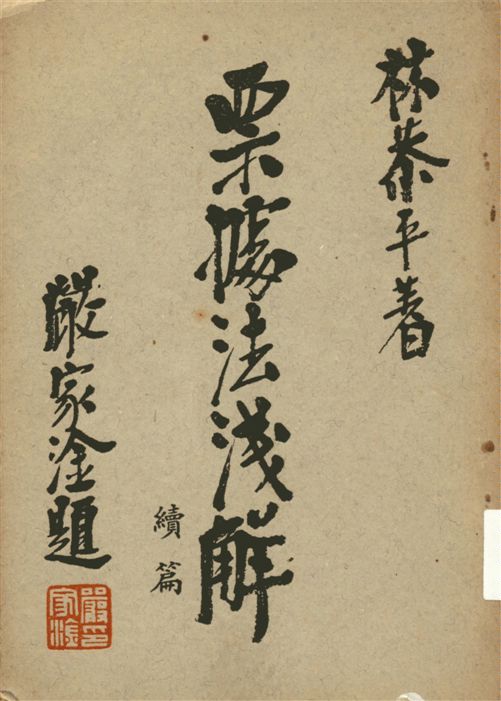 林泰平著
票據法淺解
續篇
嚴家淦題
嚴家淦印